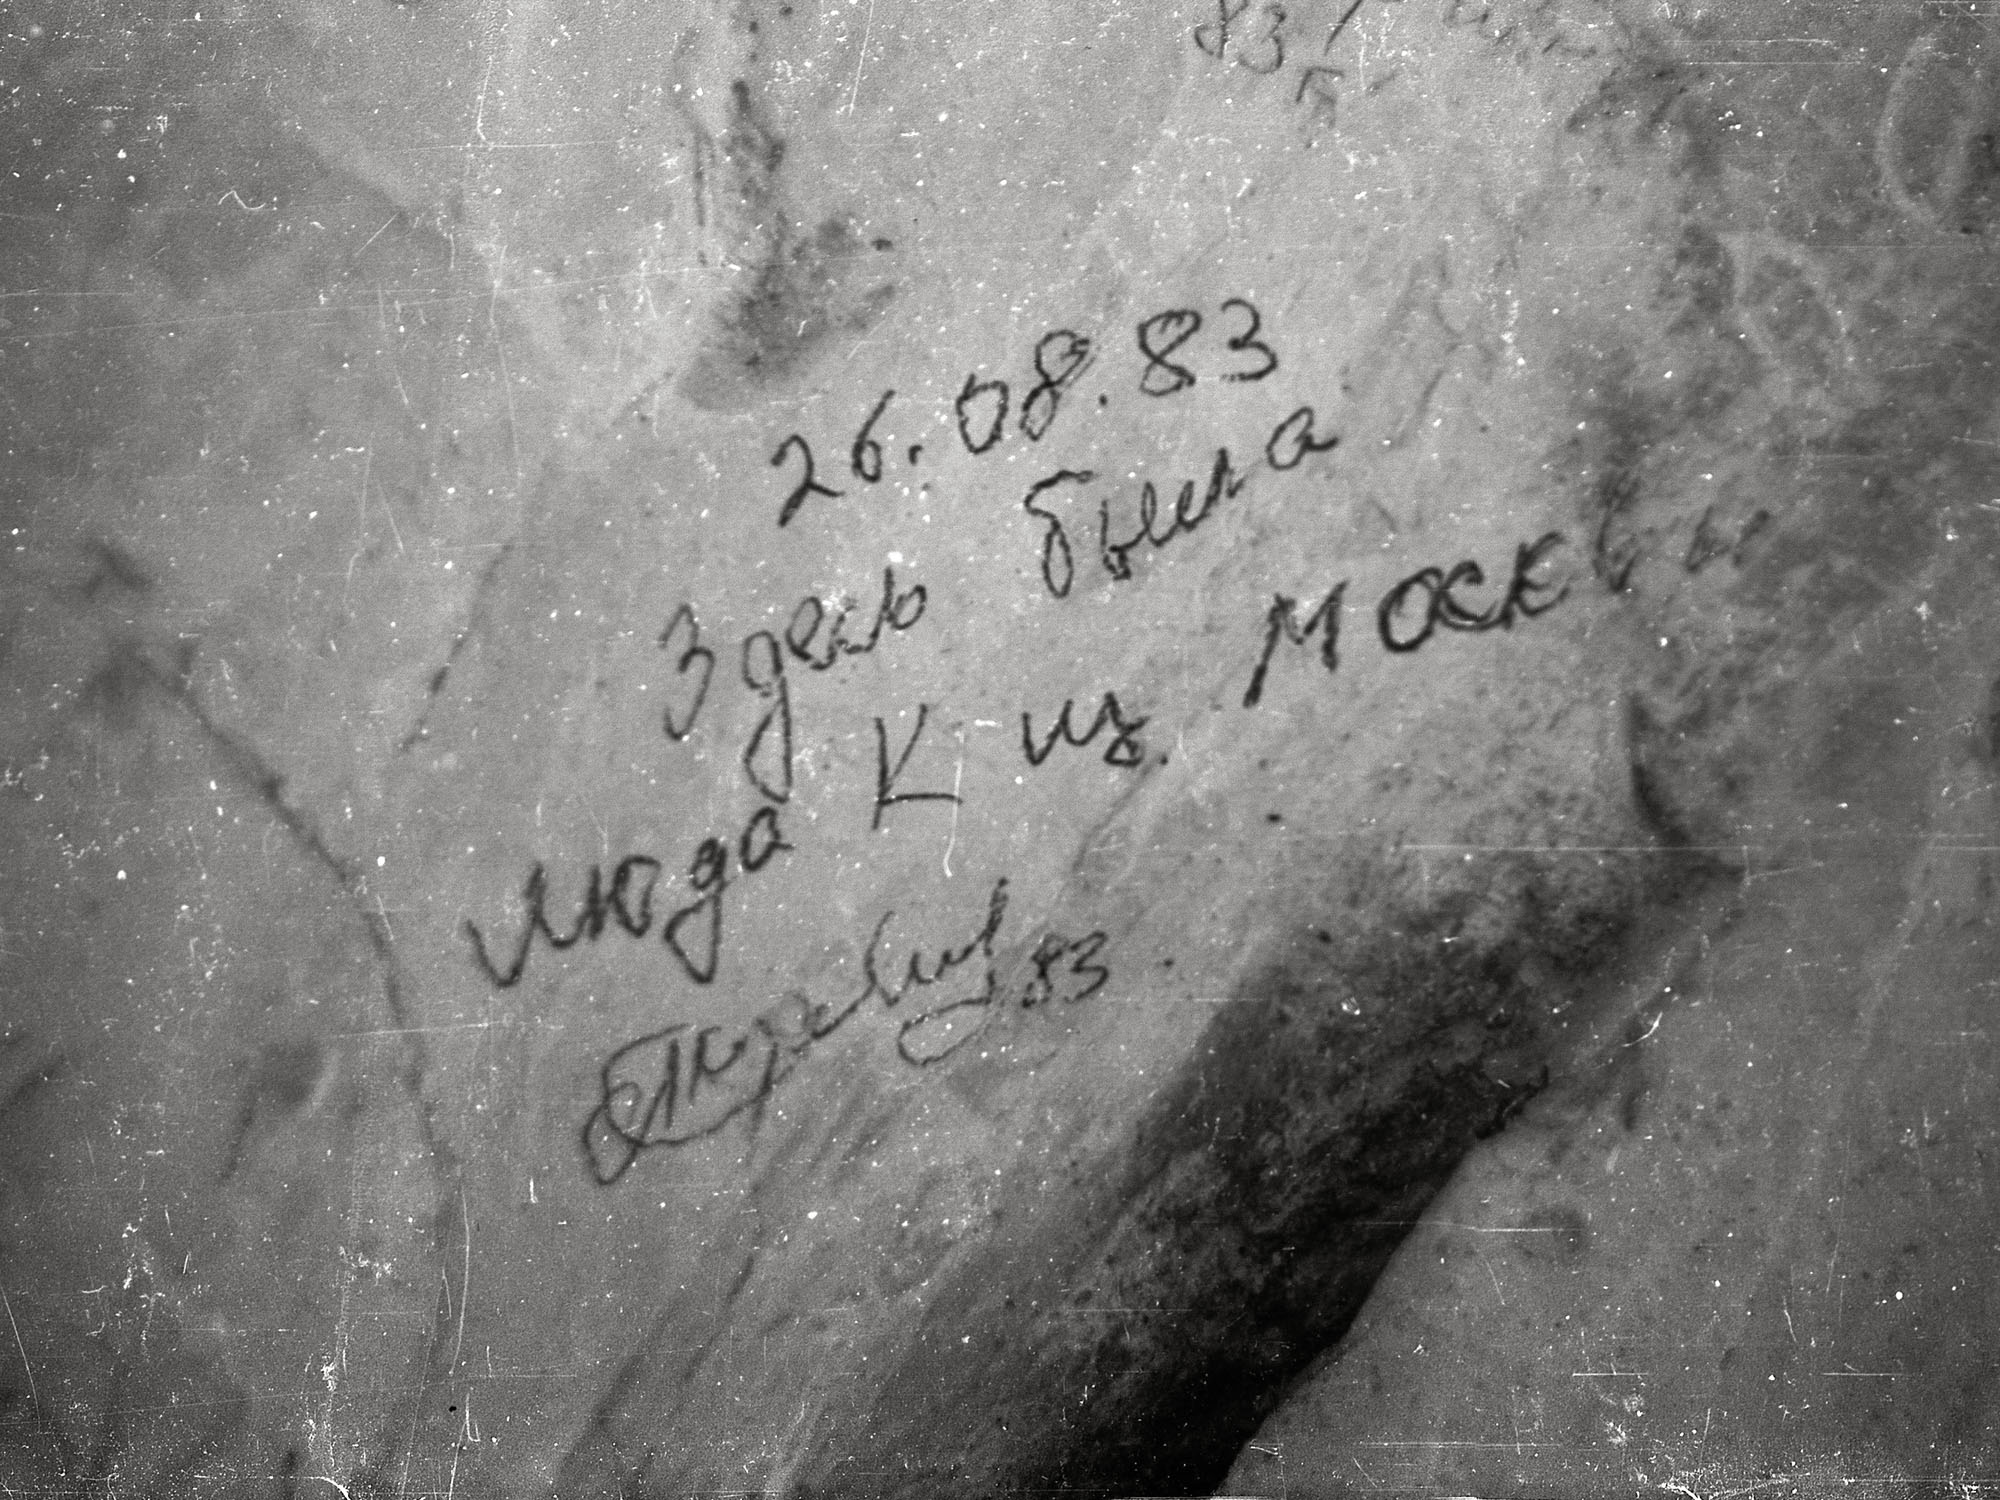 83
26.08.83
Здесь была
Люда К из Москвы
83